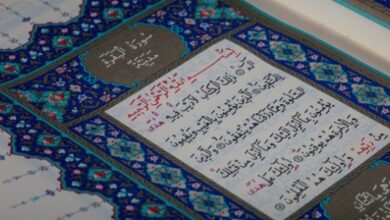 سورة البقرة
مدنية
بسم الله الرحمن الرحيم
الم ذلك الكتاب لا ريب فيه
هدى للمتقين الذين يؤمنون بالغيب ويقيمون
الصلوة ومما رزقناهم ينفقون والذين
يؤمنون بما انزل اليك وما انزل من قبلك
وبالاخرة هم يوقنون اولئك على هدى
من ربهم واولئك هم المفلحون